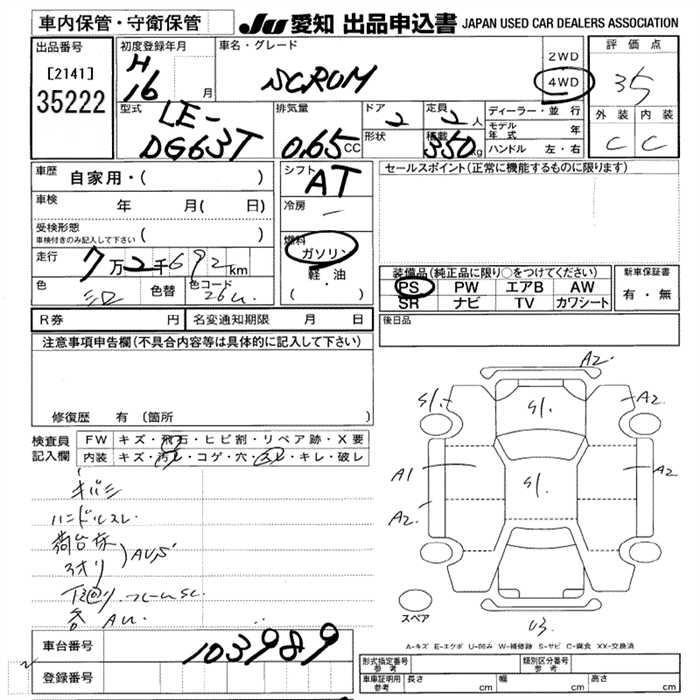 車内保管・守衛保管
JU 愛知 出品申込書 JAPAN USED CAR DEALERS ASSOCIATION
出品番号
[2141]
35222
初度登録年月
H
16 月
車名・グレード
SCRUM
2WD
4WD
評価点
35
外装 内装
C C
型式
LE-
DG63T
排気量
0.65 CC
ドア
2
定員
2 人
形状
積載
350 kg
ディーラー・並行
モデル年式 年
ハンドル 左・右
車歴
自家用・( )
車検
年 月( 日)
受検形態
車検付きのみ記入して下さい
( )
走行
7万2千692km
色
シロ
色替
色コード
26U
シフト
AT
冷房
―
燃料
ガソリン
軽油
( ・ )
セールスポイント(正常に機能するものに限ります)
装備品(純正品に限り○をつけてください)
PS PW エアB AW
SR ナビ TV カワシート
新車保証書
有・無
R券 円
名変通知期限 月 日
後日品
注意事項申告欄(不具合内容等は具体的に記入して下さい)
修復歴 有 (箇所 )
検査員
記入欄
FW キズ・飛石・ヒビ割・リペア跡・X要
内装 キズ・汚レ・コゲ・穴・スレ・キレ・破レ
キバミ
ハンドルスレ
荷台床
アオリ
AUS
下廻り
各AU
A2
S1.
S1.
A2
A1
S1.
A2
A2
U3
スペア
A-キズ E-エクボ U-凹み W-補修跡 S-サビ C-腐食 XX-交換済
車台番号
103989
登録番号
形式指定番号
参考
類別区分番号
参考
車庫証明用
参考
長さ cm
幅 cm
高さ cm